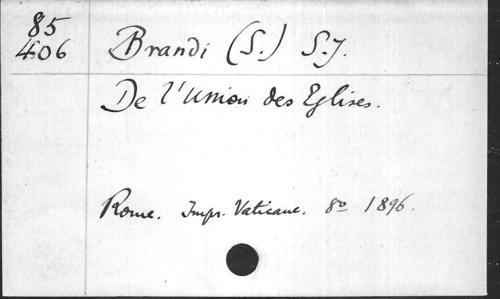 85
406
Brandi (S.) S.J.
De l'union des Eglises.
Rome. Impr. Vaticane. 8º 1896.